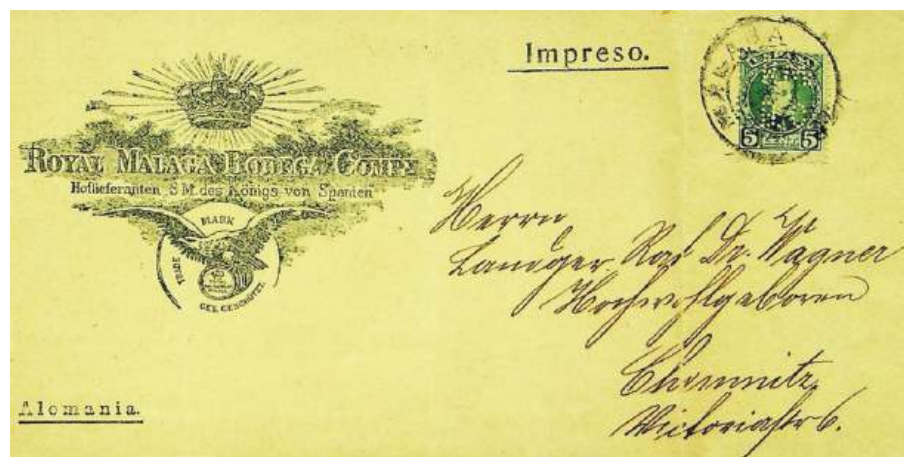 Impreso.
MALAGA
5 CENT. 5
ROYAL MALAGA BODEGA COMPY
Hoflieferanten S.M. des Königs von Spanien
TRADE MARK
GES. GESCHÜTZT.
Herrn
Landger. Rat Dr. Wagner
Hochwohlgeboren
Chemnitz
Victoriastr 6.
Alemania.